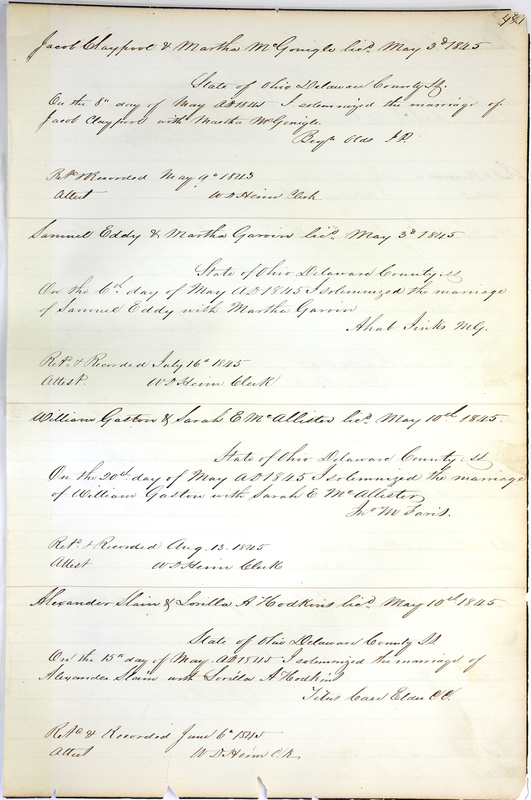 481
Jacob Claypool & Martha McGonigle licd. May 3d 1845
State of Ohio Delaware County SS.
On the 8th day of May AD 1845 I solemnized the marriage of
Jacob Claypool with Martha McGonigle.
Benjn Olds J.P.
Retd & Recorded May 9th 1845
Attest W D Heim Clerk
Samuel Eddy & Martha Garvin licd. May 3d 1845
State of Ohio Delaware County SS
On the 6th day of May AD 1845 I solemnized the marriage
of Samuel Eddy with Martha Garvin
Ahab Jinks M.G.
Retd. & Recorded July 16th 1845
Attest. W D Heim Clerk
William Gaston & Sarah E McAllister licd. May 10th 1845.
State of Ohio Delaware County SS
On the 20th day of May AD 1845 I solemnized the marriage
of William Gaston with Sarah E McAllister
Jno M Faris.
Retd. & Recorded Aug. 13. 1845
Attest W D Heim Clerk
Alexander Slain & Lorilla A Hodkins licd. May 10th 1845.
State of Ohio Delaware County SS
On the 15th day of May AD 1845 I solemnized the marriage of
Alexander Slain with Lorilla A Hodkins
Titus Case Elder C.C.
Retd & Recorded June 6th 1845
Attest W D Heim Clk